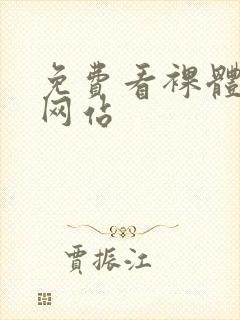 免費看裸體
网站
賈振江